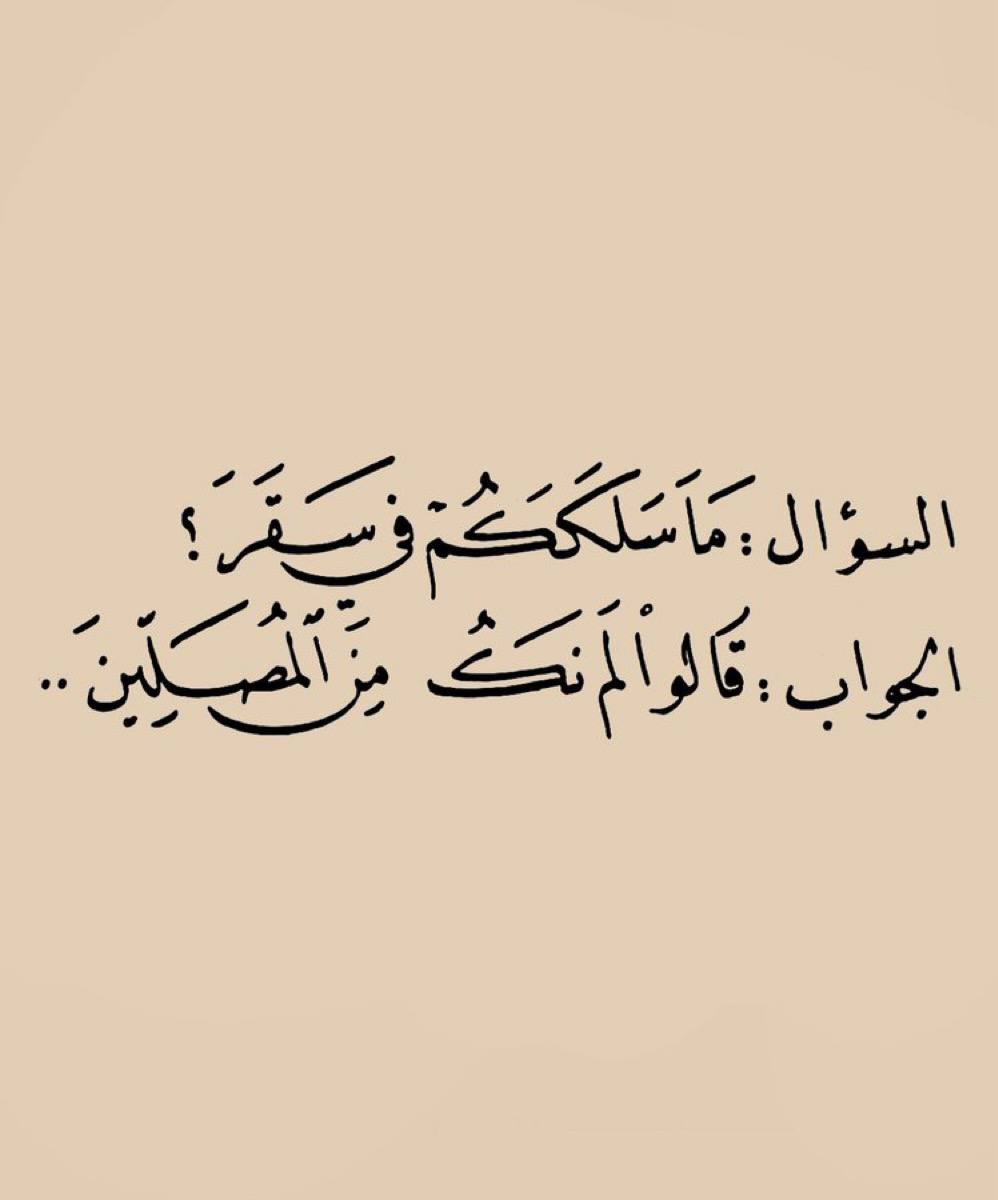 السؤال : مَا سَلَكَكُمْ فِي سَقَرَ ؟
الجواب : قَالُواْ لَمْ نَكُ مِنَ ٱلْمُصَلِّينَ ..